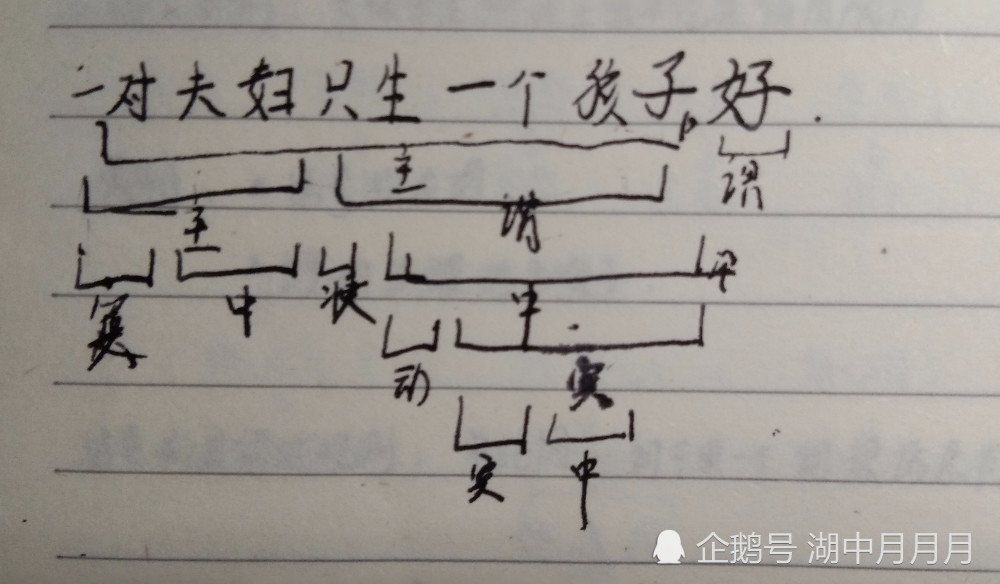 一对夫妇只生一个孩子好.
主 谓
主 谓
中 状 中
动 宾
中
企鹅号 湖中月月月